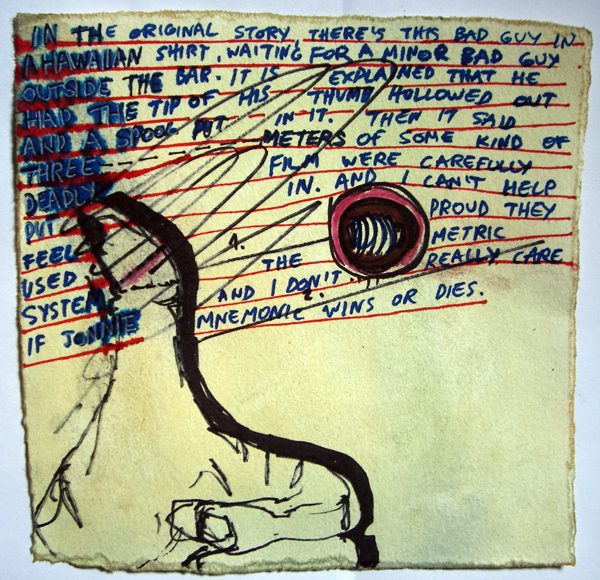 IN THE ORIGINAL STORY, THERE'S THIS BAD GUY IN
A HAWAIIAN SHIRT, WAITING FOR A MINOR BAD GUY
OUTSIDE THE BAR. IT IS EXPLAINED THAT HE
HAD THE TIP OF HIS THUMB HOLLOWED OUT
AND A SPOOL PUT IN IT. THEN IT SAID
THREE METERS OF SOME KIND OF
DEADLY FILM WERE CAREFULLY
PUT IN. AND I CAN'T HELP
FEEL PROUD THEY
1.
USED THE METRIC
SYSTEM AND I DON'T REALLY CARE
2.
IF JONNIE MNEMONIC WINS OR DIES.